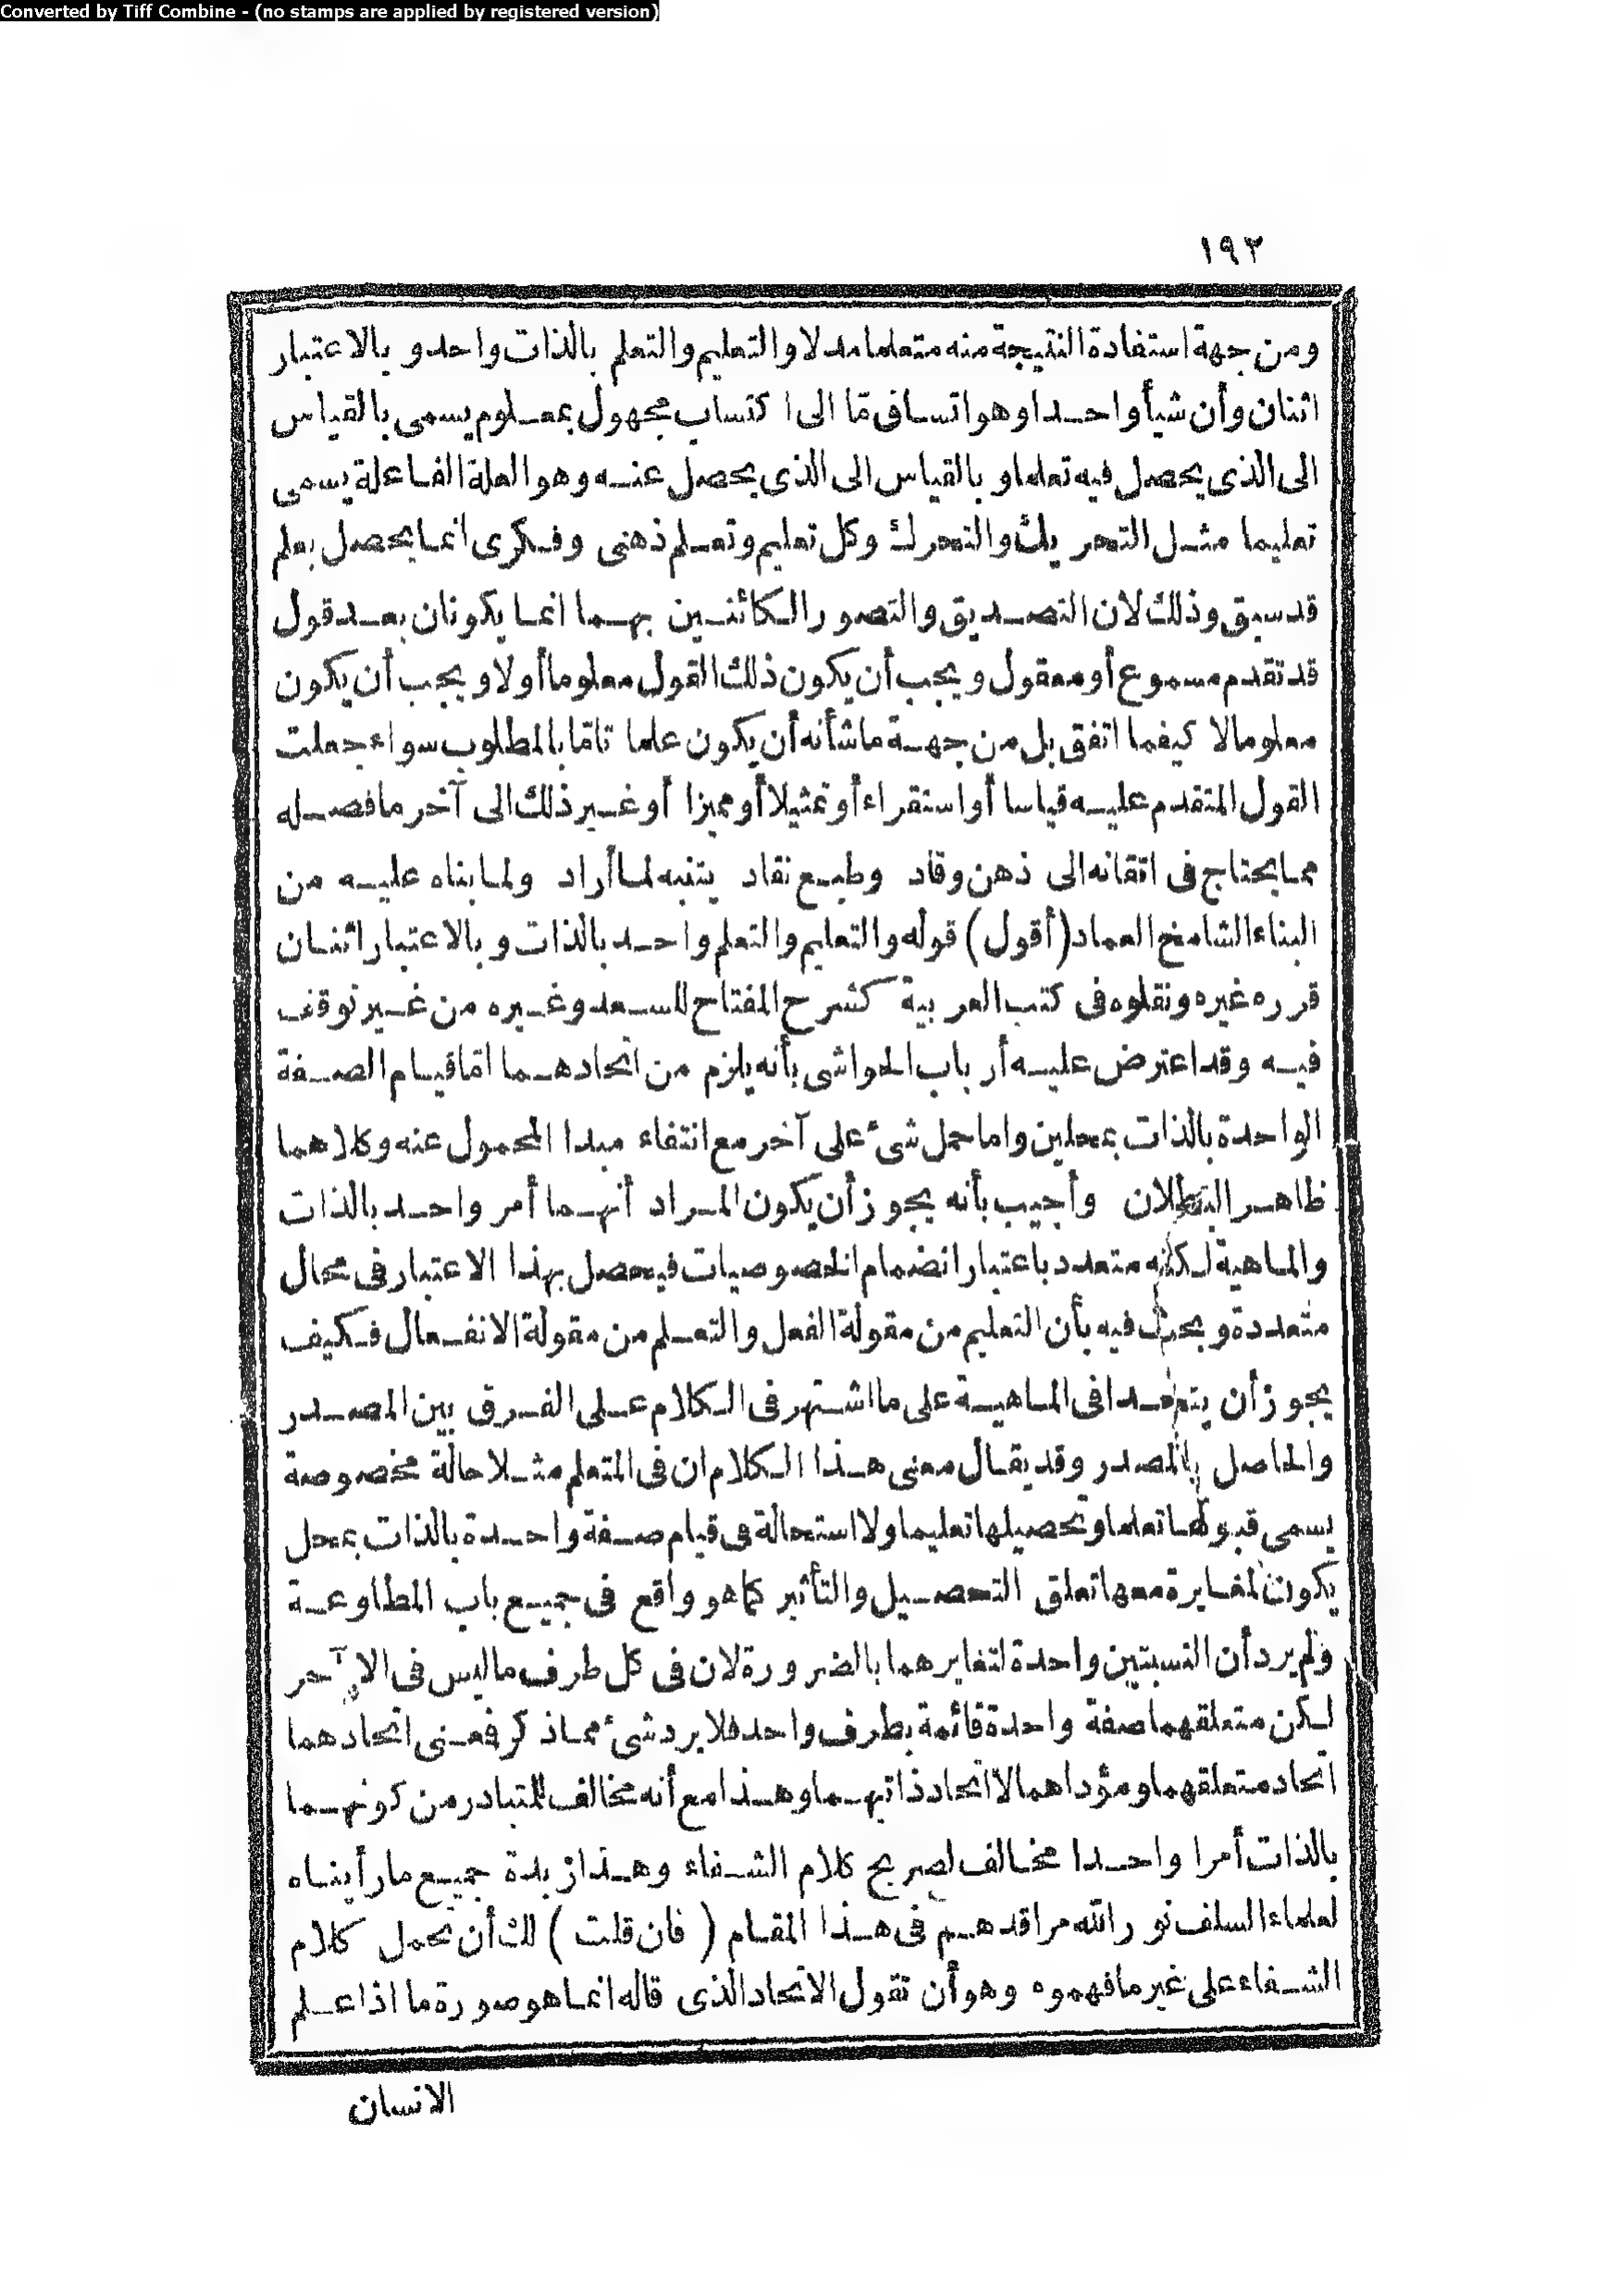 Converted by Tiff Combine - (no stamps are applied by registered version)
١٩٢
ومن جهة استفادة النتيجة منه متعلما مدلا والتعليم والتعلم بالذات واحد وبالاعتبار
اثنان وأن شيأ واحدا وهو اتساق مّا الى اكتساب مجهول بمعلوم يسمى بالقياس
الى الذى يحصل فيه تعلما وبالقياس الى الذى يحصل عنه وهو العلة الفاعلة يسمى
تعليما مثل التحريك والتحرك وكل تعليم وتعلم ذهنى وفكرى انما يحصل بعلم
قد سبق وذلك لان التصديق والتصور الكائنين بهما انما يكونان بعد قول
قد تقدم مسموع أو معقول ويجب أن يكون ذلك القول معلوما أولا ويجب أن يكون
معلوما لا كيفما اتفق بل من جهة ما شأنه أن يكون علما تامّا بالمطلوب سواء جعلت
القول المتقدم عليه قياسا أو استقراء أو تمثيلا أو مميزا أو غير ذلك الى آخر ما فصله
مما يحتاج فى اتقانه الى ذهن وقاد وطبع نقاد يتنبه لما أراد ولما بناه عليه من
البناء الشامخ العماد (أقول) قوله والتعليم والتعلم واحد بالذات وبالاعتبار اثنان
قرره غيره ونقلوه فى كتب العربية كشرح المفتاح للسعد وغيره من غير توقف
فيه وقد اعترض عليه أرباب الحواشى بأنه يلزم من اتحادهما امّا قيام الصفة
الواحدة بالذات بمحلين واما حمل شئ على آخر مع انتفاء مبدا المحمول عنه وكلاهما
ظاهر البطلان وأجيب بأنه يجوز أن يكون المراد أنهما أمر واحد بالذات
والماهية لكنه متعدد باعتبار انضمام الخصوصيات فيحصل بهذا الاعتبار فى محال
متعددة وبحث فيه بأن التعليم من مقولة الفعل والتعلم من مقولة الانفعال فكيف
يجوز أن يتحدا فى الماهية على ما اشتهر فى الكلام على الفرق بين المصدر
والحاصل بالمصدر وقد يقال معنى هذا الكلام ان فى المتعلم مثلا حالة مخصوصة
يسمى قبولها تعلما وتحصيلها تعليما ولا استحالة فى قيام صفة واحدة بالذات بمحل
يكون لمغايرة معها تعلق التحصيل والتأثير كما هو واقع فى جميع باب المطاوعة
ولم يرد أن النسبتين واحدة لتغايرهما بالضرورة لان فى كل طرف ما ليس فى الآخر
لكن متعلقهما صفة واحدة قائمة بطرف واحد فلا يرد شئ مما ذكر فمعنى اتحادهما
اتحاد متعلقهما ومؤداهما لا اتحاد ذاتيهما وهذا مع أنه مخالف للمتبادر من كونهما
بالذات أمرا واحدا مخالف لصريح كلام الشفاء وهذا زبدة جميع ما رأيناه
لعلماء السلف نور الله مراقدهم فى هذا المقام (فان قلت) لك أن تحمل كلام
الشفاء على غير ما فهموه وهو أن تقول الاتحاد الذى قاله انما هو صورة ما اذا علم
الانسان